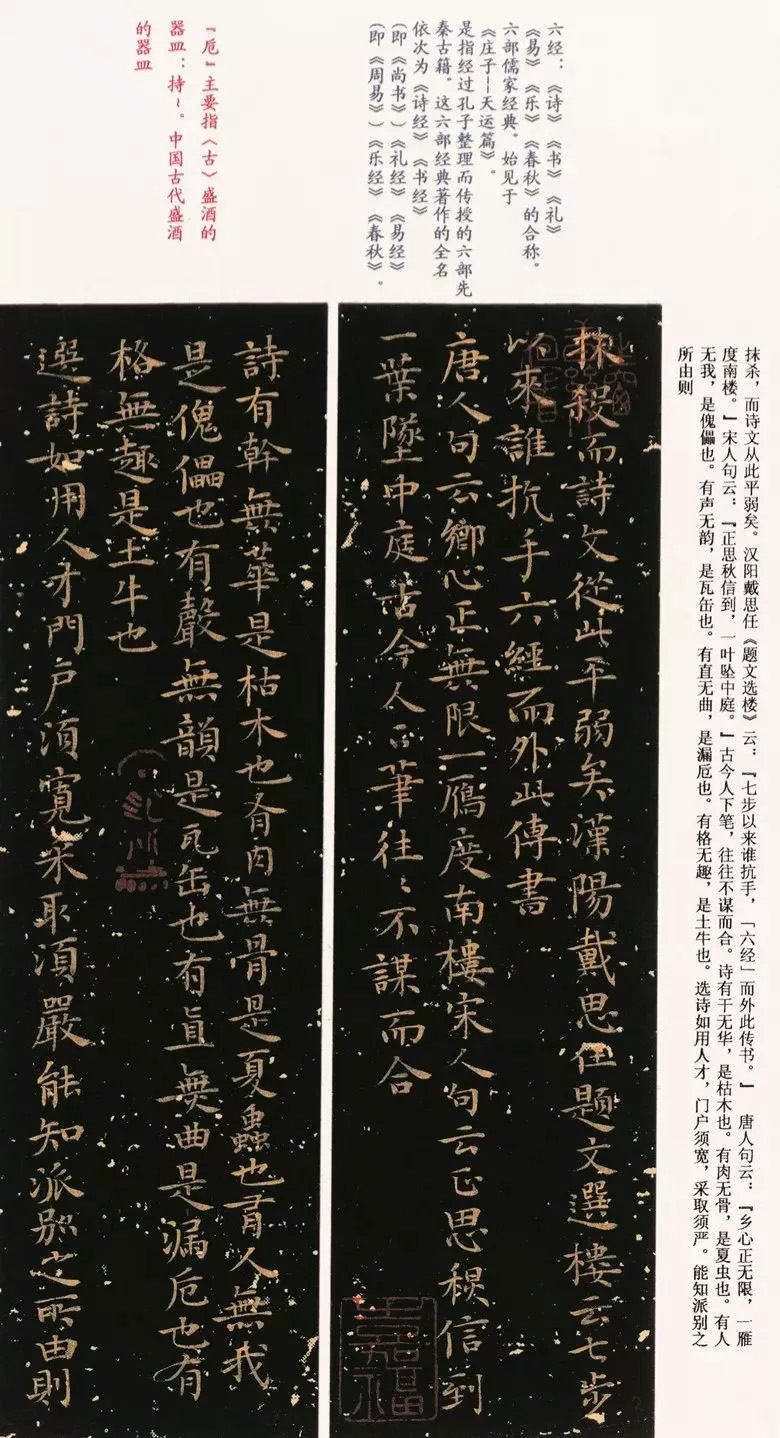 六经：《诗》《书》《礼》
《易》《乐》《春秋》的合称。
六部儒家经典。始见于
《庄子—天运篇》。
是指经过孔子整理而传授的六部先
秦古籍。这六部经典著作的全名
依次为《诗经》《书经》
(即《尚书》)《礼经》《易经》
(即《周易》)《乐经》《春秋》。
『卮』主要指〈古〉盛酒的
器皿：持~。中国古代盛酒
的器皿
抹杀，而诗文从此平弱矣。汉阳戴思任《题文选楼》云：『七步以来谁抗手，「六经」而外此传书。』 唐人句云：『乡心正无限，一雁
度南楼。』宋人句云：『正思秋信到，一叶坠中庭。』古今人下笔，往往不谋而合。诗有干无华，是枯木也。有肉无骨，是夏虫也。有人
无我，是傀儡也。有声无韵，是瓦缶也。有直无曲，是漏卮也。有格无趣，是土牛也。选诗如用人才，门户须宽，采取须严。能知派别之
所由则
抹殺而詩文從此平弱矣漢陽戴思任題文選樓云七步
以來誰抗手六經而外此傳書
唐人句云鄉心正無限一鴈度南樓宋人句云正思秋信到
一葉墜中庭古今人下筆往々不謀而合
詩有幹無華是枯木也有肉無骨是夏蟲也有人無我
是傀儡也有聲無韻是瓦缶也有直無曲是漏卮也有
格無趣是土牛也
選詩如用人才門戶須寬采取須嚴能知派別之所由則